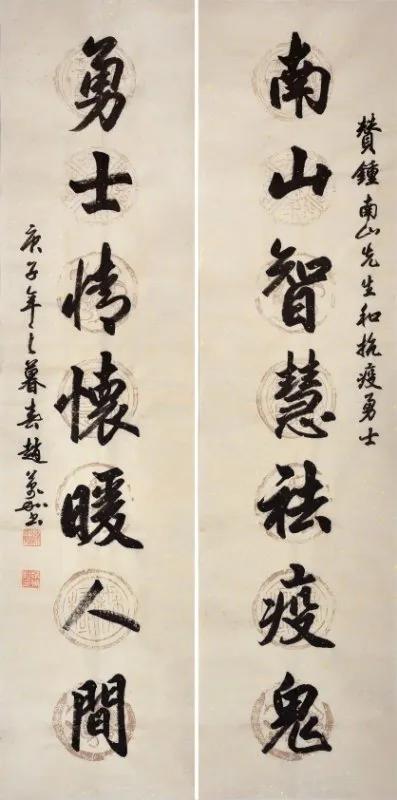 贊鍾南山先生和抗疫勇士
南山智慧祛疫鬼
勇士情懷暖人間
庚子年之暮春趙萬	書